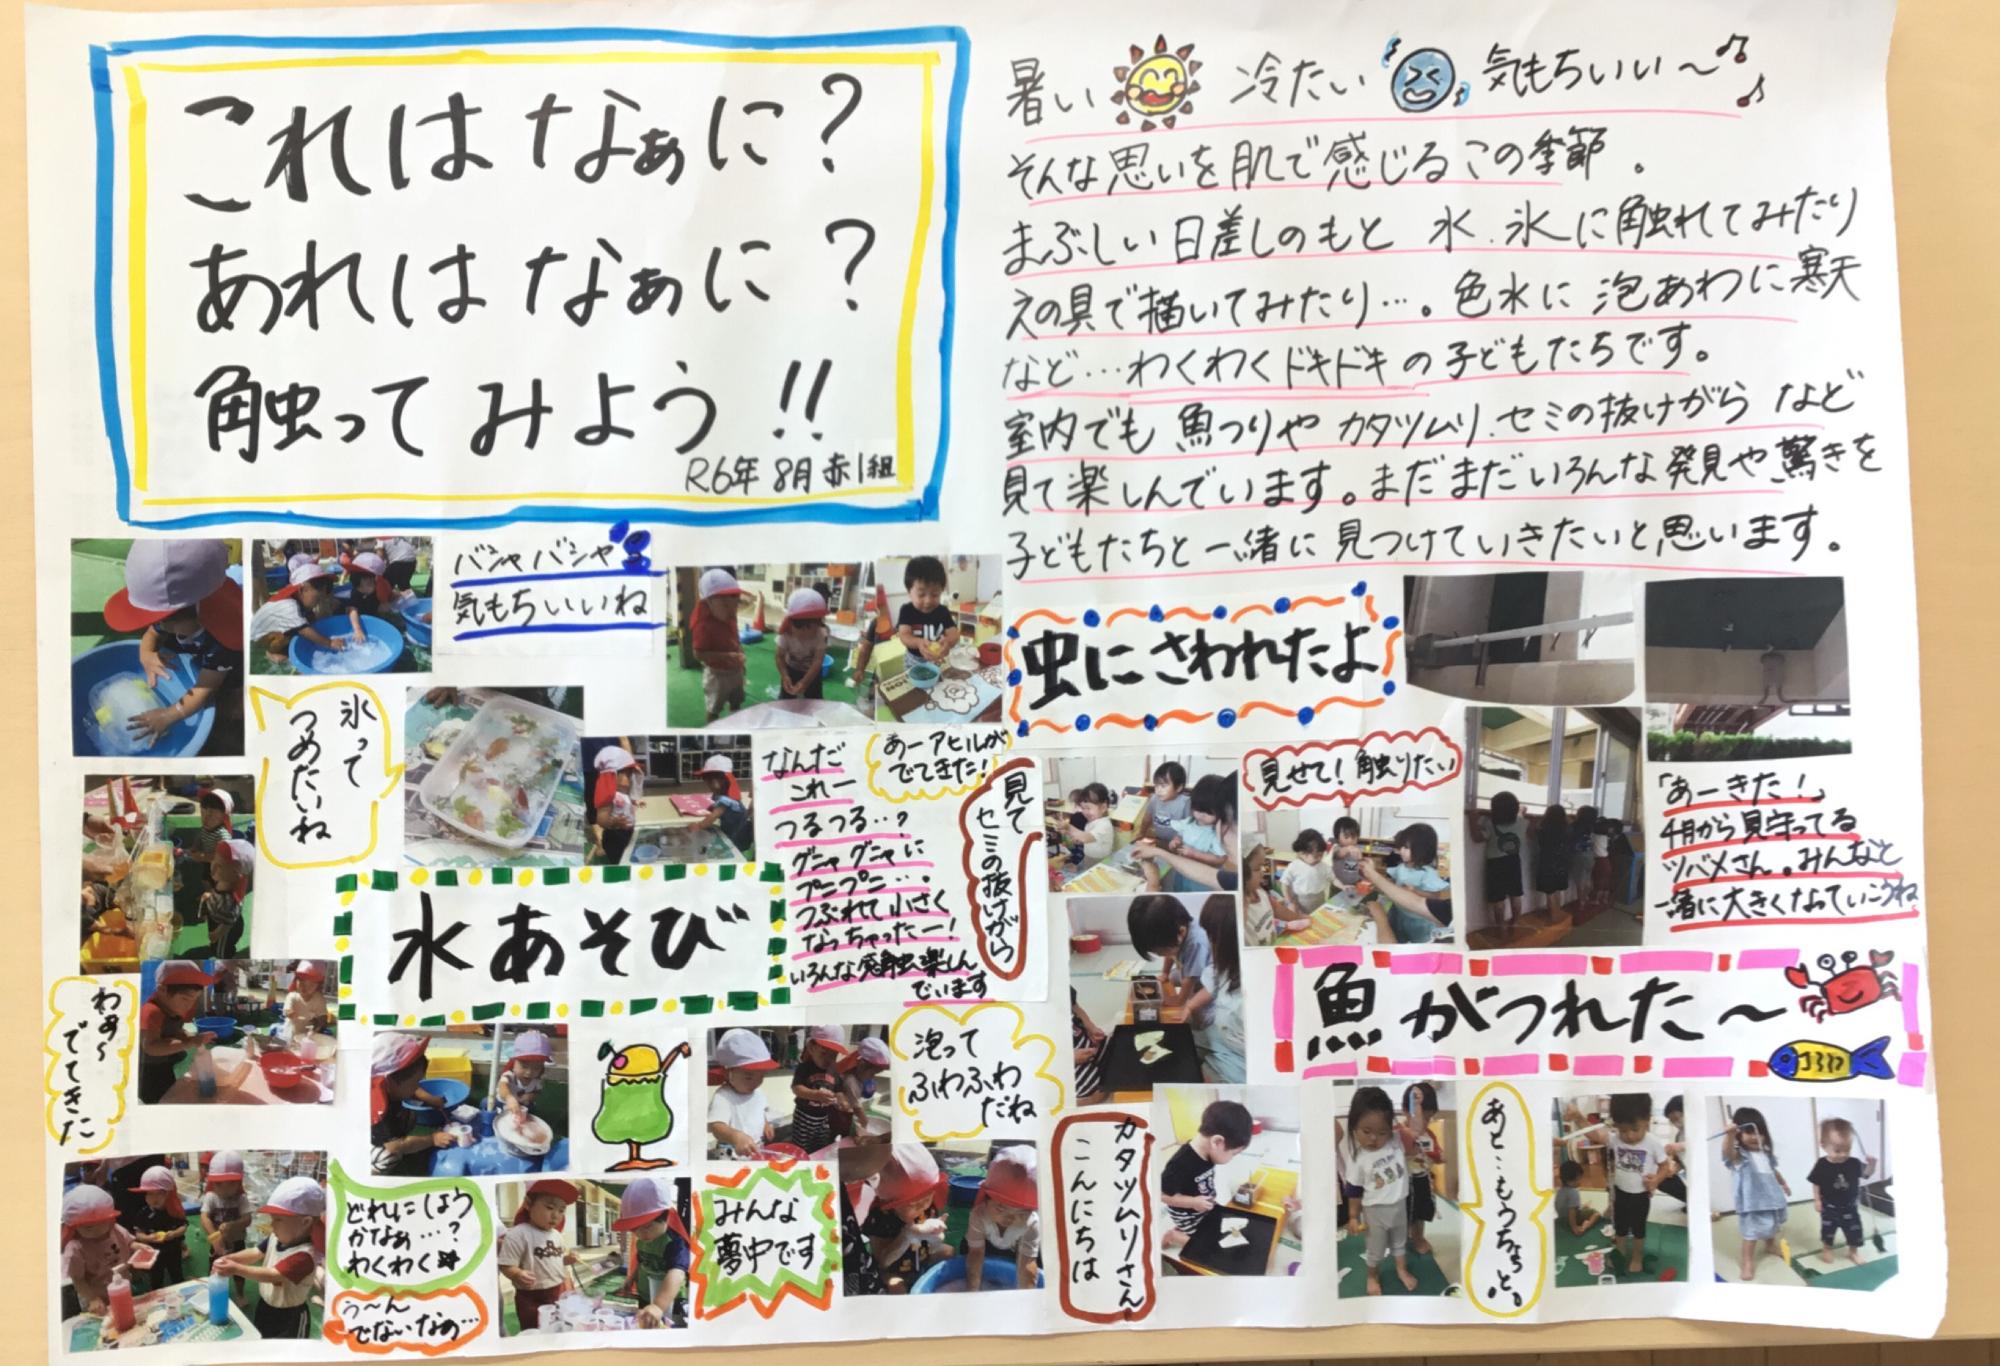 これはなぁに?
あれはなぁに?
触ってみよう!!
R6年 8月 赤1組
暑い 冷たい 気もちいい〜♪
そんな思いを肌で感じるこの季節。
まぶしい日差しのもと 水、氷に触れてみたり
えの具で描いてみたり…。色水に 泡あわに寒天
など…わくわくドキドキの子どもたちです。
室内でも 魚つりや カタツムリ、セミの抜けがら など
見て楽しんでいます。まだまだいろんな発見や驚きを
子どもたちと一緒に 見つけていきたいと思います。
バシャバシャ
気もちいいね
氷って
つめたいね
なんだ
これー
つるつる…?
グニャグニャに
プニプニ…。
つぶれて小さく
なっちゃったー!
いろんな感触楽しん
でいます
あーアヒルが
でてきた!
水あそび
わぁ〜
でてきた
どれにしよう
かなぁ…?
わくわく
う〜ん
でないなぁ…
みんな
夢中です
泡って
ふわふわ
だね
虫にさわれたよ
見て
セミの抜けがら
見せて!触りたい
カタツムリさん
こんにちは
「あーきた!」
4月から見守ってる
ツバメさん。みんなと
一緒に大きくなっていこうね
魚がつれた〜
あと…もうちょっと。